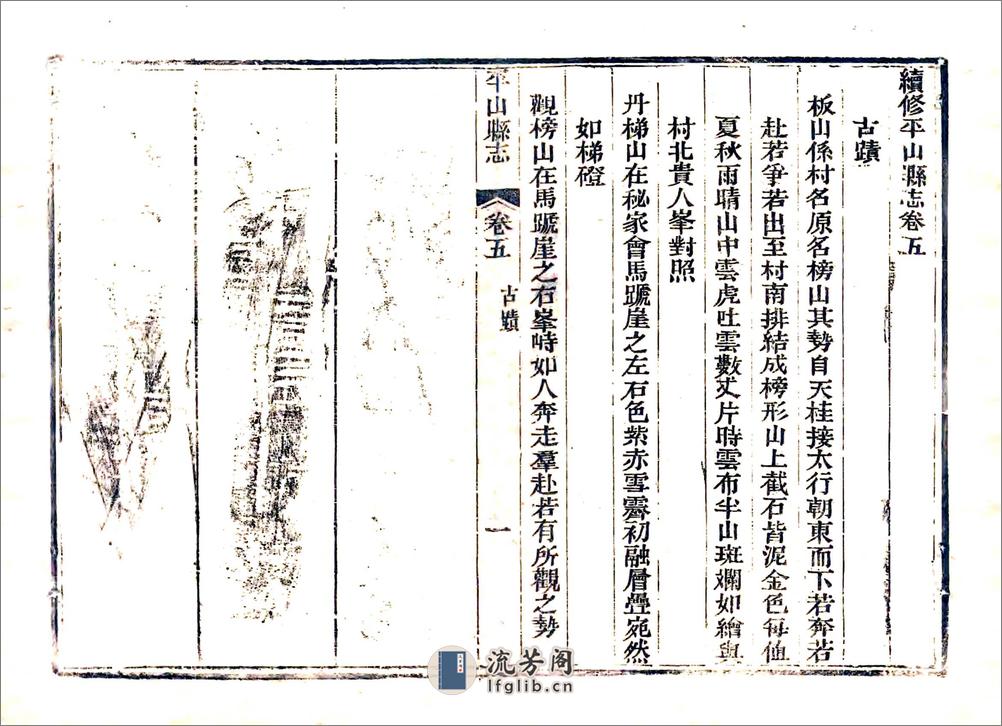 續修平山縣志卷五
古蹟
板山係村名原名榜山其勢自天桂接太行朝東而下若奔若
赴若爭若出至村南排結成榜形山上截石皆泥金色每値
夏秋雨晴山中雲虎吐雲數丈片時雲布半山斑斕如繪與
村北貴人峯對照
丹梯山在秘家會馬蹏崖之左石色紫赤雪霽初融層疊宛然
如梯磴
觀榜山在馬蹏崖之右峯時如人奔走羣赴若有所觀之勢
平山縣志
卷五
古蹟
一
流芳阁
lfglib.cn